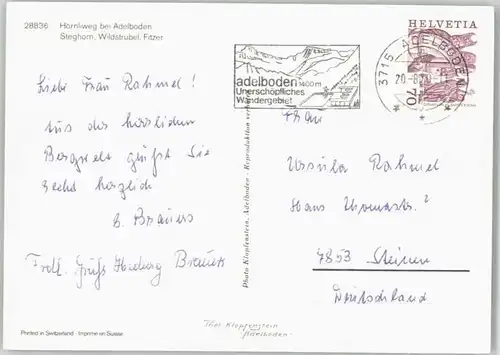 28836 Hörnliweg bei Adelboden
Steghorn, Wildstrubel, Fitzer
Liebe Frau Rahmel!
Aus der herrlichen
Bergwelt grüßt Sie
recht herzlich
Brauers
Frdl. Grüße Hedwig Brauers
Printed in Switzerland - Imprimé en Suisse
Photo Klopfenstein, Adelboden - Reproduktion
Thos Klopfenstein
Adelboden
adelboden 1400m
Unerschöpfliches
Wandergebiet
HELVETIA
3715 ADELBODEN
70
Frau
Ursula Rahmel
Hans Thomastr.
7853 Steinen
Deutschland